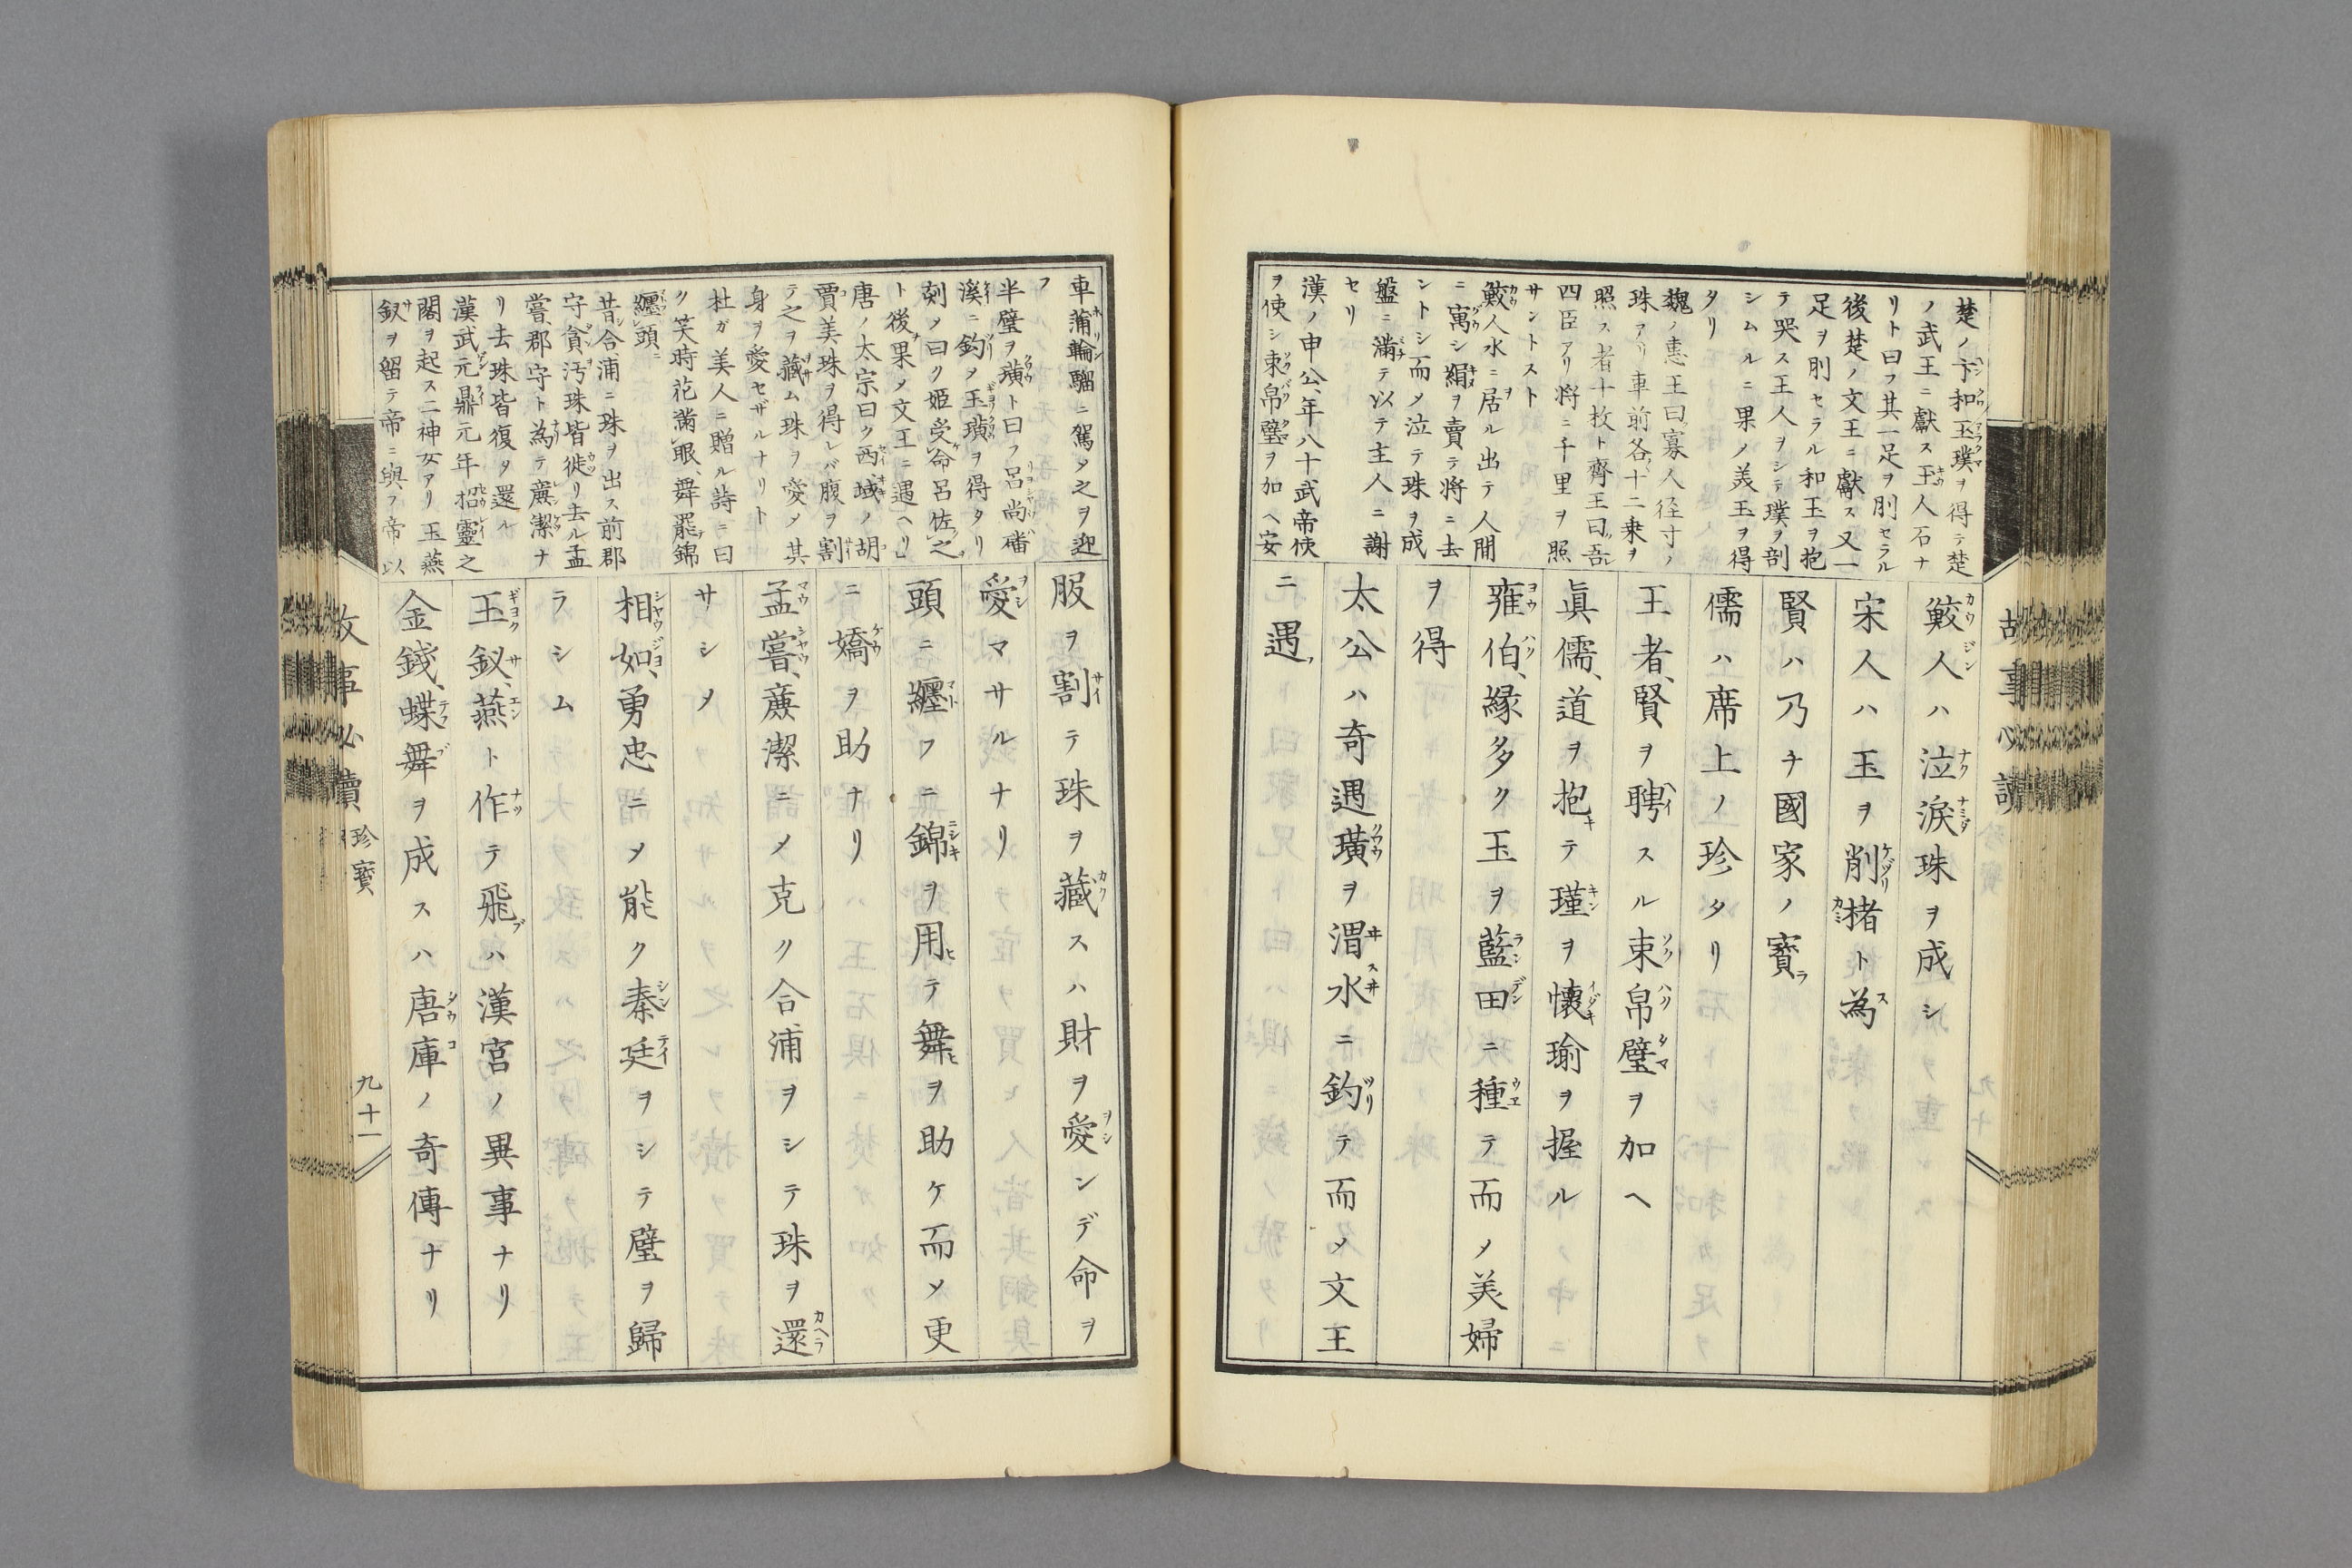 楚ノ卞和玉璞ヲ得テ楚
ノ武王ニ獻ス玉人石ナ
リト曰フ其一足ヲ刖セラル
後楚ノ文王ニ獻ス又一
足ヲ刖セラル和玉ヲ抱
テ哭ス王人ヲシテ璞ヲ剖
シムルニ果ノ美玉ヲ得
タリ
魏ノ惠王曰寡人径寸ノ
珠アリ車前各十二乗ヲ
照ス者十枚ト齊王曰吾
四臣アリ将ニ千里ヲ照
サントスト
鮫人水ニ居ル出テ人間
ニ寓シ綃ヲ賣テ将ニ去
ントシ而メ泣テ珠ヲ成
盤ニ滿テ以テ主人ニ謝
セリ
漢ノ申公、年八十武帝使
ヲ使シ束帛璧ヲ加ヘ安
鮫人ハ泣淚珠ヲ成シ
宋人ハ玉ヲ削楮ト為
賢ハ乃チ國家ノ寶
儒ハ席上ノ珍タリ
王者、賢ヲ聘スル束帛璧ヲ加ヘ
眞儒、道ヲ抱テ瑾ヲ懷瑜ヲ握ル
雍伯、縁多ク玉ヲ藍田ニ種テ而メ美婦
ヲ得
太公ハ奇遇璜ヲ渭水ニ釣テ而メ文王
ニ遇
車蒲輪駟ニ駕メ之ヲ迎
フ
半璧ヲ璜ト曰フ呂尚磻
溪ニ釣メ玉璜ヲ得タリ
刻メ曰ク姬受命呂佐之
ト後果メ文王ニ遇ヘリ
唐ノ太宗曰ク西域ノ胡
賈美珠ヲ得レバ腹ヲ割
テ之ヲ藏ム珠ヲ愛メ其
身ヲ愛セザルナリト
杜ガ美人ニ贈ル詩ニ曰
ク笑時花滿眼、舞罷錦
纏頭
昔シ合浦ニ珠ヲ出ス前郡
守貪汚珠皆徙リ去ル孟
嘗、郡守ト為テ廉潔ナ
リ去珠皆復タ還ル
漢武元鼎元年招靈之
閣ヲ起ス二神女アリ玉燕
釵ヲ留テ帝ニ與フ帝以
服ヲ割テ珠ヲ藏スハ財ヲ愛ンデ命ヲ
愛マサルナリ
頭ニ纏フニ錦ヲ用テ舞ヲ助ケ而メ更
ニ嬌ヲ助ナリ
孟嘗、廉潔ニメ克ク合浦ヲシテ珠ヲ還
サシメ
相如、勇忠ニメ能ク秦廷ヲシテ璧ヲ歸
ラシム
玉釵、燕ト作テ飛ハ漢宮ノ異事ナリ
金錢、蝶舞ヲ成スハ唐庫ノ奇傳ナリ
故事必讀 珍寳 九十一